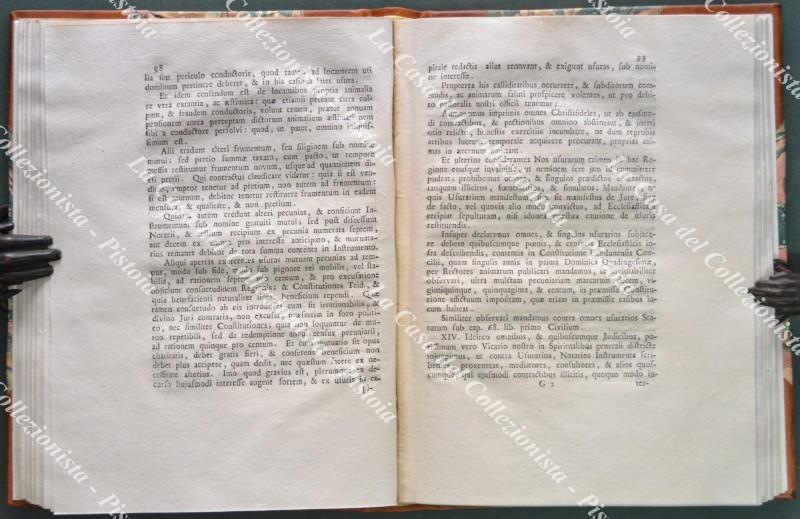 98
lia sint periculo conductoris, quod tamen ad locatorem uti
dominum pertinere deberet, & in his casibus latet usura.
Et idem censendum est de locantibus propria animalia
re vera extantia, ac æstimata: quæ etiamsi pereant citra cul-
pam, & fraudem conductoris, volunt tamen, præter annuam
pensionem antea perceptam dictorum animalium æstimationem
sibi a conductore persolvi: quod, ut patet, omnino iniquis-
simum est.
Alii tradunt alteri frumentum, seu siliginem sub nomine
mutui: sed pretio summæ taxato, cum pacto, ut tempore
messis restituatur frumentum novum, usque ad quantitatem di-
cti pretii. Qui contractus claudicare videtur: quia si est ven-
ditio, emptor tenetur ad pretium, non autem ad frumentum:
si est mutuum, debitor tenetur restituere frumentum in eadem
mensura, & qualitate, & non pretium.
Quidam autem credunt alteri pecunias, & conficiunt In-
strumentum sub nomine gratuiti mutui; sed post discessum
Notarii, & testium recipiunt ex pecunia numerata septem,
aut decem ex centum pro interesse anticipato, & mutuata-
rius remanet debitor de tota summa contenta in Instrumento.
Aliqui apertas exercentes usuras mutuant pecunias ad tem-
pus, modo sub fide, modo sub pignore rei mobilis, vel sta-
bilis, ad rationem septem pro centum, & pro excusatione
objiciunt consuetudinem Regionis; & Constitutiones Trid., &
quia benefacienti naturaliter licet beneficium rependi. Quæ
tamen consuetudo ab eis introducta cum sit irrationabilis, &
divino Juri contraria, non excusat, præsertim in foro politi-
co, nec similiter Constitutiones; quia non loquuntur de mu-
tuo repetibili, sed de redemptione annui census pecuniarii,
ad rationem quinque pro centum. Et cum mutuatio sit opus
charitatis, debet gratis fieri, & conferens beneficium non
debet plus accipere, quam dedit, nec quæstum facere ex ne-
cessitate alterius. Imo quod gravius est, plerumque ex de-
cursis hujusmodi interesse augent sortem, & ex usuris in ca-
pi-
99
pitale redactis alias renovant, & exigunt usuras, sub nomi-
ne interesse.
Propterea his calliditatibus occurrere, & subditorum com-
modis, ac animarum saluti prospicere volentes, ut pro debi-
to pastoralis nostri officii tenemur;
Admonemus imprimis omnes Christifideles, ut ab ejusmo-
di contractibus, & pactionibus omnino abstineant, & inertii
otio relicto honestis exercitiis incumbant, ne dum reprobis
artibus lucrum temporale acquirere procurant, proprias ani-
mas in æternum amittant.
Et ulterius considerantes Nos usurarum crimen in hac Re-
gione eousque invaluisse, ut neminem fere jam id committere
pudeat; prohibemus omnes, & singulos prædictos contractus,
tanquam illicitos, fœneratitios, & simulatos; Mandantes, ne
quis Usurarium manifestum, sive sit manifestus de Jure, sive
de facto, vel quovis alio modo convictus, ad Ecclesiasticam
recipiat sepulturam, nisi idonea præstita cautione de usuris
restituendis.
Insuper declaramus omnes, & singulos usurarios subjace-
re debere quibuscumque pœnis, & censuris Ecclesiasticis in-
fra describendis, contentis in Constitutione Laudunensis Con-
cilii, quam singulis annis in prima Dominica Quadragesimæ,
per Rectores animarum publicari mandamus, & inviolabiliter
observari, ultra mulctam pecuniariam marcarum decem, vi-
gintiquinque, quinquaginta, & centum, in præmissa Constitu-
tione afflictuum impositam, quæ etiam in præmissis casibus lo-
cum habeat.
Similiter observari mandamus contra omnes usurarios Sta-
tutum sub cap. 68. lib. primo Civilium.
XIV. Idcirco omnibus, & quibuscumque Judicibus, po-
tissimum vero Vicario nostro in Spiritualibus generali districte
injungimus, ut contra Usurarios, Notarios Instrumenta scri-
bentes, proxenetas, mediatores, consultores, & alios quos-
cumque, qui ejusmodi contractibus illicitis, quoquo modo in-
G 2 ter-
La Casa del Collezionista - Pistoia